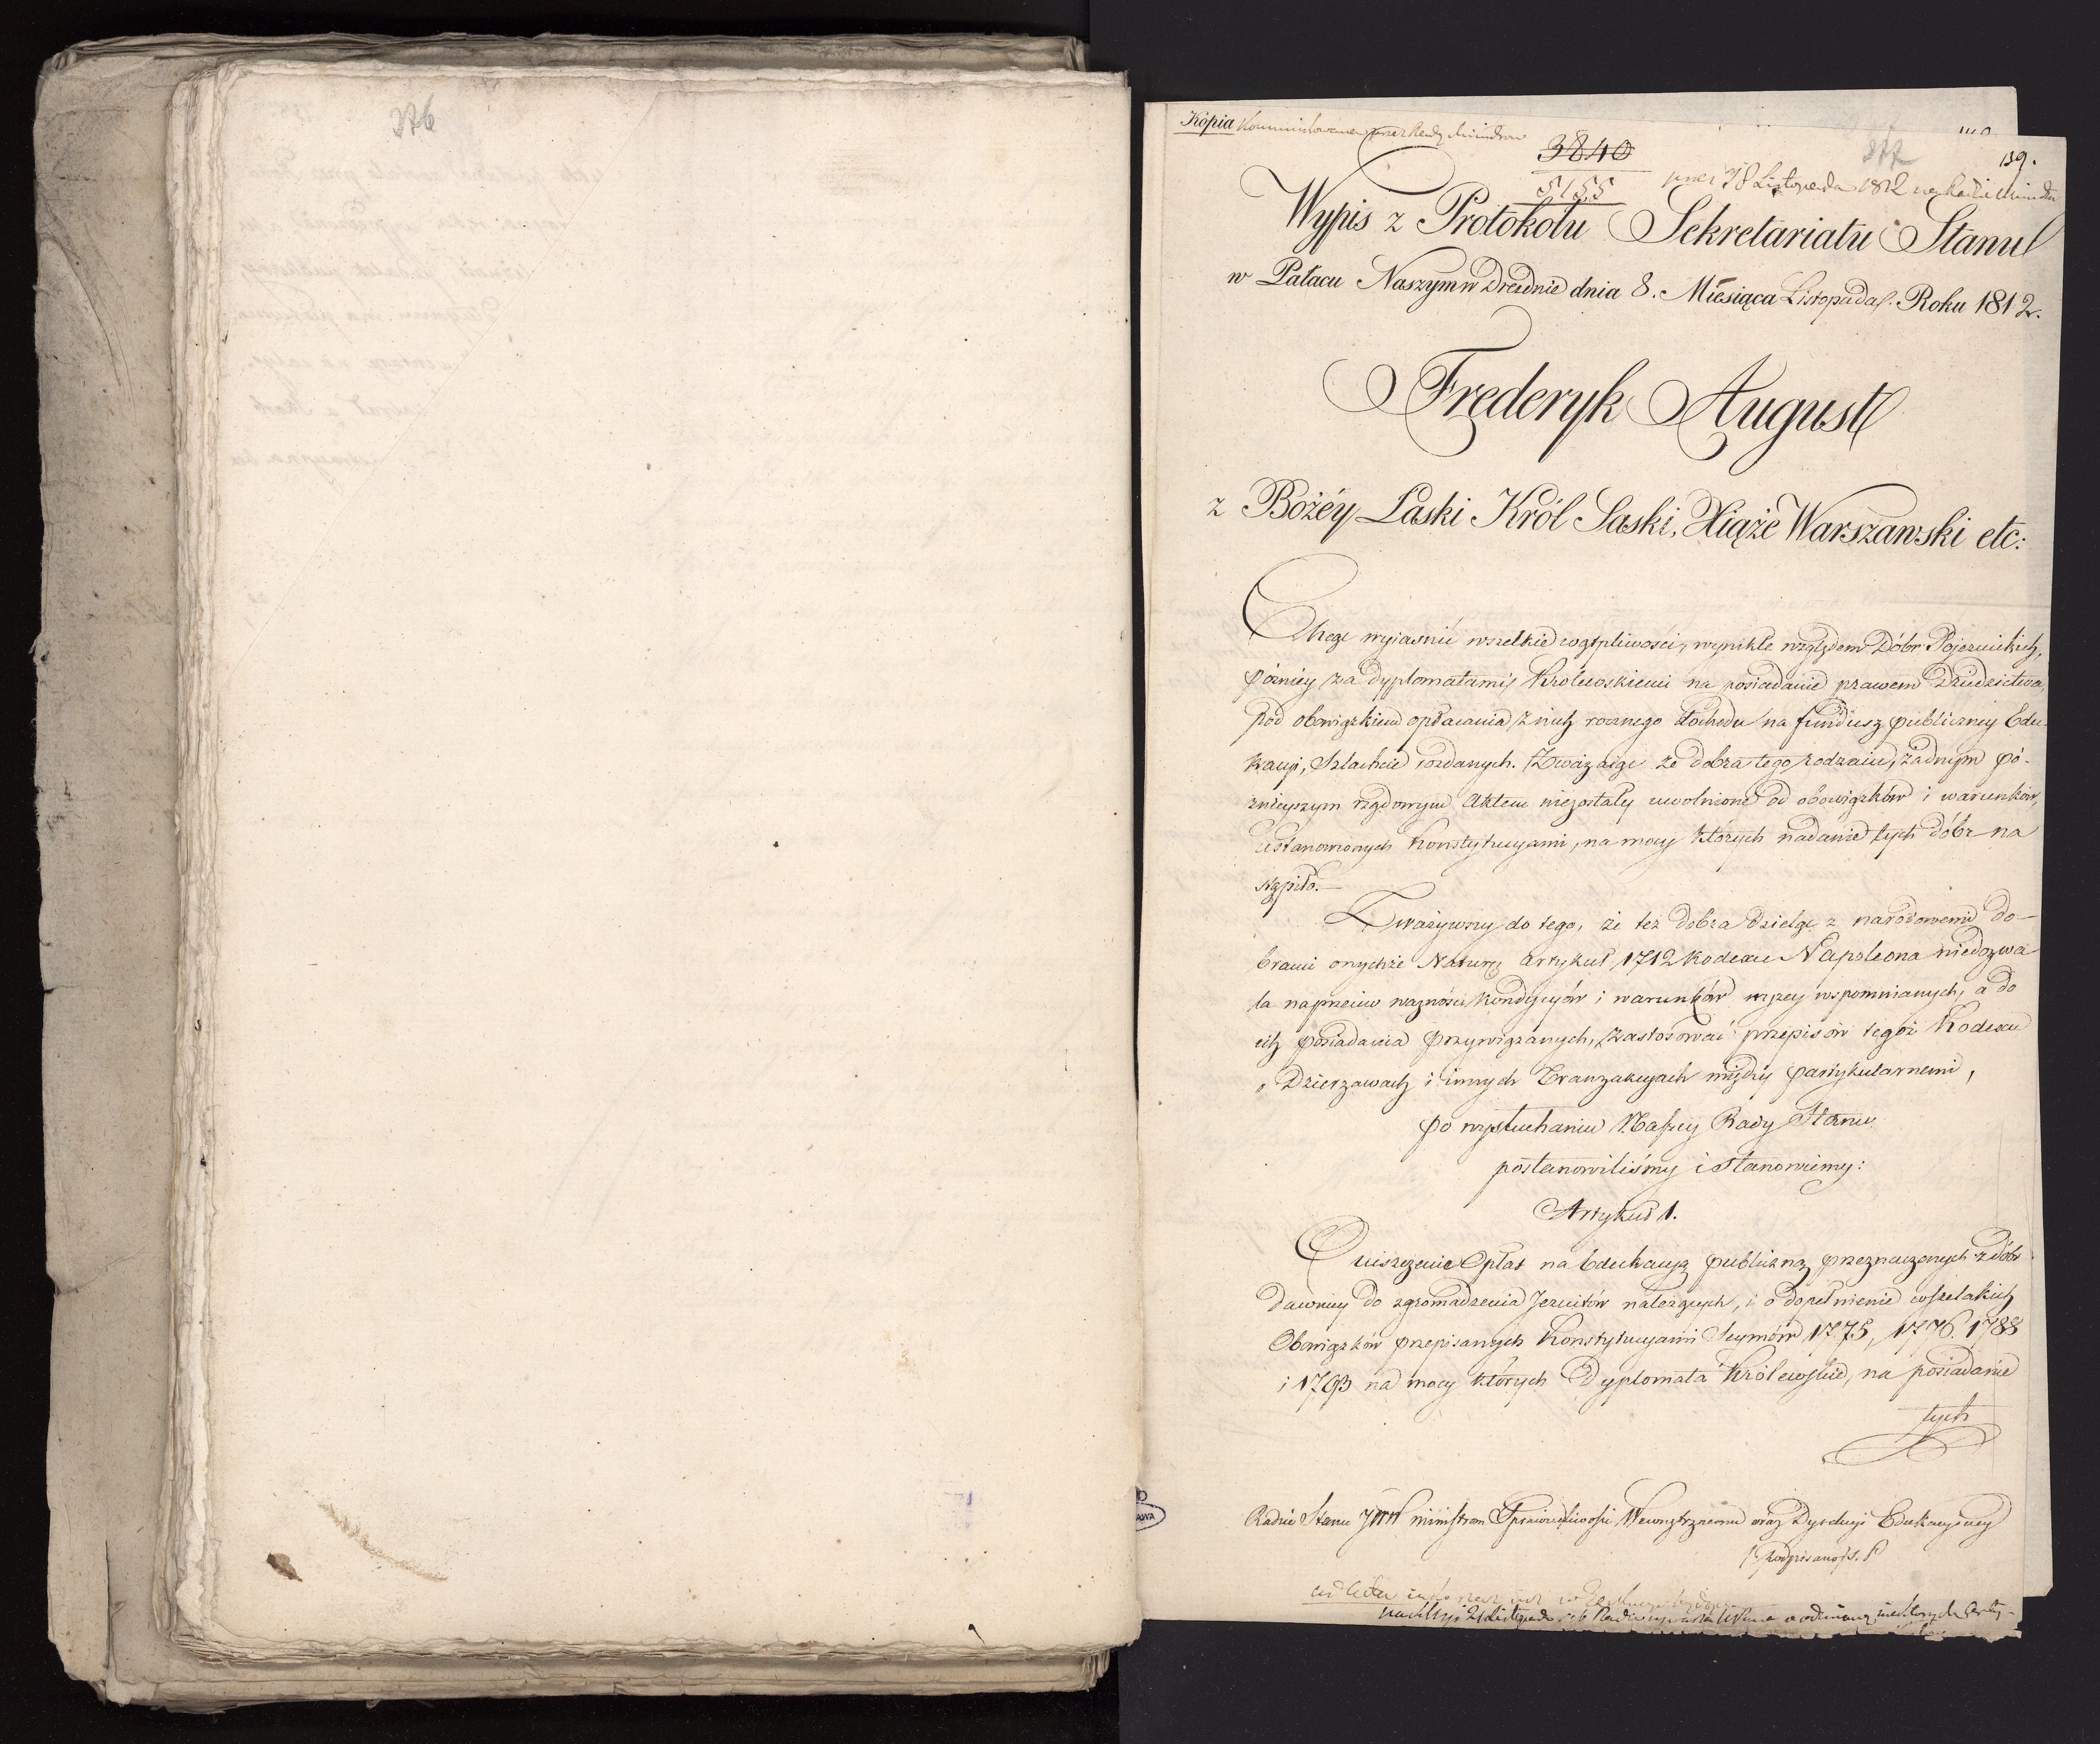 376
Kopia Kommunikowana przez Radę Ministrów
3840
5155
377
139.
przez 78 Listopada 1812 na Radzie Ministr
Wypis z Protokołu Sekretariatu Stanu
w Pałacu Naszym w Dreźnie dnia 8. Miesiąca Listopada Roku 1812.
Frederyk August
z Bożéy Łaski Król Saski, Xiąże Warszawski etc:
Chcąc wyiaśnić wszelkie wątpliwości, wynikłe względem Dóbr Pojezuickich,
późniey za dyplomatami Królewskiemi na posiadanie prawem Dziedzictwa,
pod obowiązkiem opłacania z nich rocznego dochodu na fundusz publiczney Edu-
kacyi, Szlachcie rozdanych. Zważaiąc że dobra tego rodzaiu, żadnym pó-
źnieyszym rządowym Aktem niezostały uwolnione od obowiązków i warunków,
ustanowionych Konstytucyami, na mocy których nadanie tych dóbr na
stąpiło.—
Zważywszy do tego, że też dobra dzielą z narodowemi do-
brami onychże Naturę Artykuł 1712 Kodexu Napoleona niedozwa
la naprzeciw ważności kondycyów i warunków wyżey wspomnianych, a do
ich posiadania przywiązanych, zastosować przepisów tegoż Kodexu
o Dzierzawach i innych Tranzakcyach między partykularnemi,
po wysłuchaniu Naszey Rady Stanu
postanowiliśmy i stanowimy:
Artykuł 1.
O uiszczenie Opłat na Edukacyą publiczną przeznaczonych z dóbr
dawniey do zgromadzenia Jezuitów należących, i o dopełnienie wszelakich
Obowiązków przepisanych Konstytucyami Seymów 1775, 1776. 1788
i 1793 na mocy których Dyplomata Królewskie, na posiadanie
tych
Radzie Stanu JWW Ministrom Sprawiedliwości Wewnętrznemu oraz Dyrekcyi Edukacyiney
(podpisano) S. P